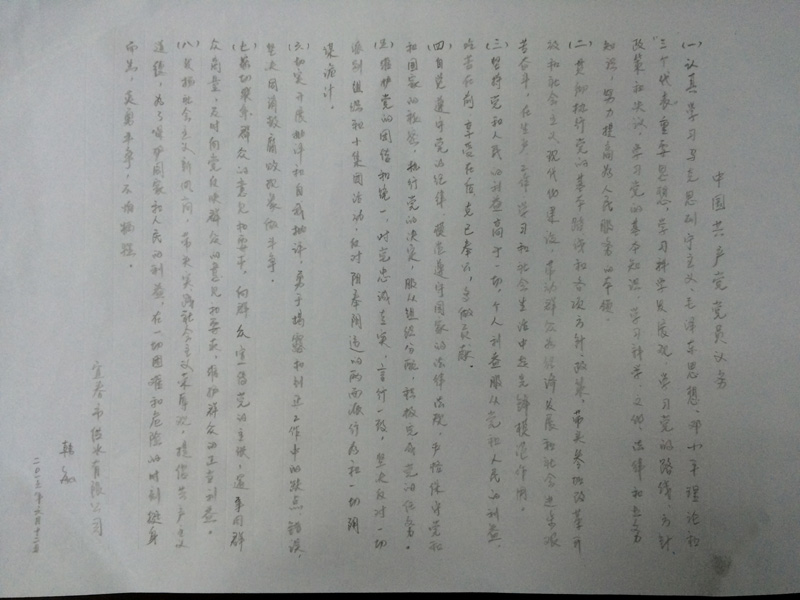 中国共产党党员义务
(一)认真学习马克思列宁主义、毛泽东思想、邓小平理论和
“三个代表”重要思想,学习科学发展观,学习党的路线、方针、
政策和决议,学习党的基本知识,学习科学、文化、法律和业务
知识,努力提高为人民服务的本领。
(二)贯彻执行党的基本路线和各项方针、政策,带头参加改革开
放和社会主义现代化建设,带动群众为经济发展和社会进步艰
苦奋斗,在生产、工作、学习和社会生活中起先锋模范作用。
(三)坚持党和人民的利益高于一切,个人利益服从党和人民的利益,
吃苦在前,享受在后,克己奉公,多做贡献。
(四)自觉遵守党的纪律,模范遵守国家的法律法规,严格保守党和
和国家的秘密,执行党的决定,服从组织分配,积极完成党的任务。
(五)维护党的团结和统一,对党忠诚老实,言行一致,坚决反对一切
派别组织和小集团活动,反对阳奉阴违的两面派行为和一切阴
谋诡计。
(六)切实开展批评和自我批评,勇于揭露和纠正工作中的缺点、错误,
坚决同消极腐败现象做斗争。
(七)密切联系群众,向群众宣传党的主张,遇事同群
众商量,及时向党反映群众的意见和要求,维护群众的正当利益。
(八)发扬社会主义新风尚,带头实践社会主义荣辱观,提倡共产主义
道德,为了保护国家和人民的利益,在一切困难和危险的时刻挺身
而出,英勇斗争,不怕牺牲。
宜春市供水有限公司
韩
二〇一三年六月十三日